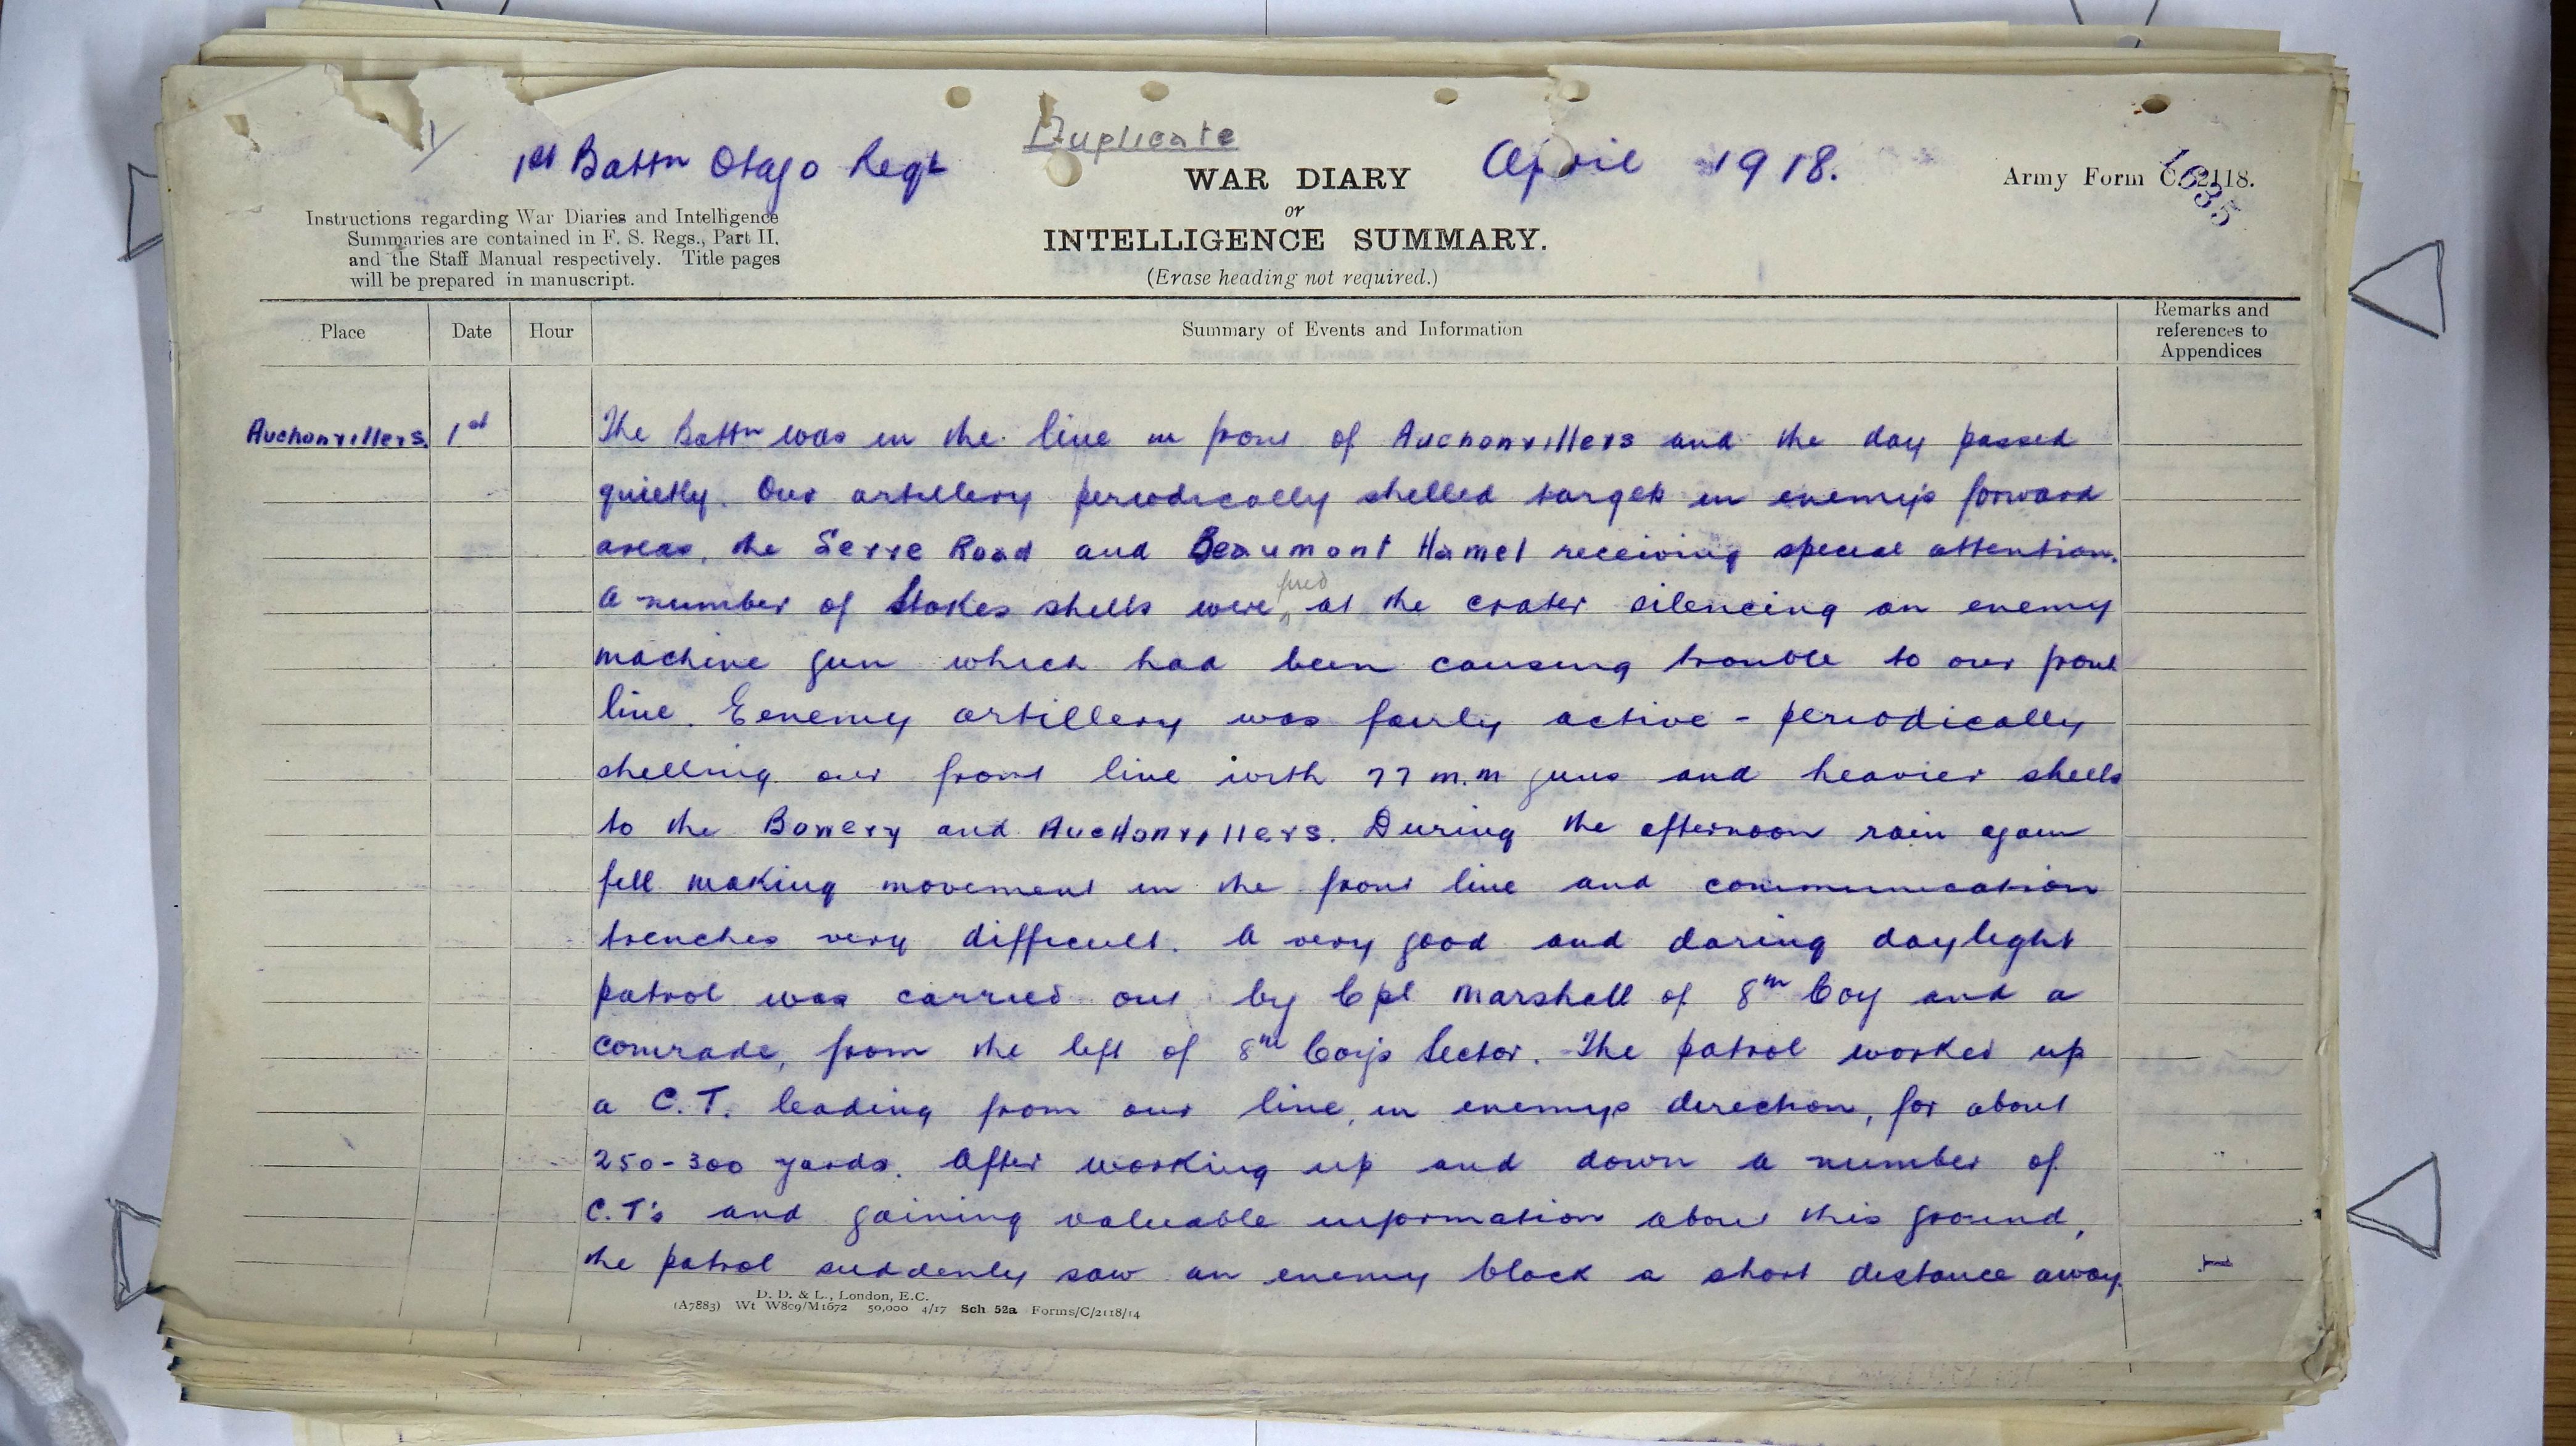 1/
Duplicate
1st Battn Otago Regt
April 1918.
WAR DIARY
or
INTELLIGENCE SUMMARY.
(Erase heading not required.)
Army Form C. 2118.
1635
Instructions regarding War Diaries and Intelligence
Summaries are contained in F. S. Regs., Part II.
and the Staff Manual respectively. Title pages
will be prepared in manuscript.
Place Date Hour Summary of Events and Information Remarks and
references to
Appendices
Auchonvillers. 1st The Battn was in the line in front of Auchonvillers and the day passed
quietly. Our artillery periodically shelled targets in enemy's forward
areas, the Serre Road and Beaumont Hamel receiving special attention.
A number of Stokes shells were fired at the crater silencing an enemy
machine gun which had been causing trouble to our front
line. Eenemy artillery was fairly active - periodically
shelling our front line with 77 m.m guns and heavier shells
to the Bowery and Auchonvillers. During the afternoon rain again
fell making movement in the front line and communication
trenches very difficult. A very good and daring daylight
patrol was carried out by Cpl Marshall of 8th Coy and a
comrade, from the left of 8th Coy's Sector. The patrol worked up
a C.T. leading from our line, in enemys direction, for about
250-300 yards. After working up and down a number of
C.T's and gaining valuable information about this ground,
the patrol suddenly saw an enemy block a short distance away.
D. D. & L., London, E.C.
(A7883) Wt W809/M1672 50,000 4/17 Sch 52a Forms/C/2118/14
1